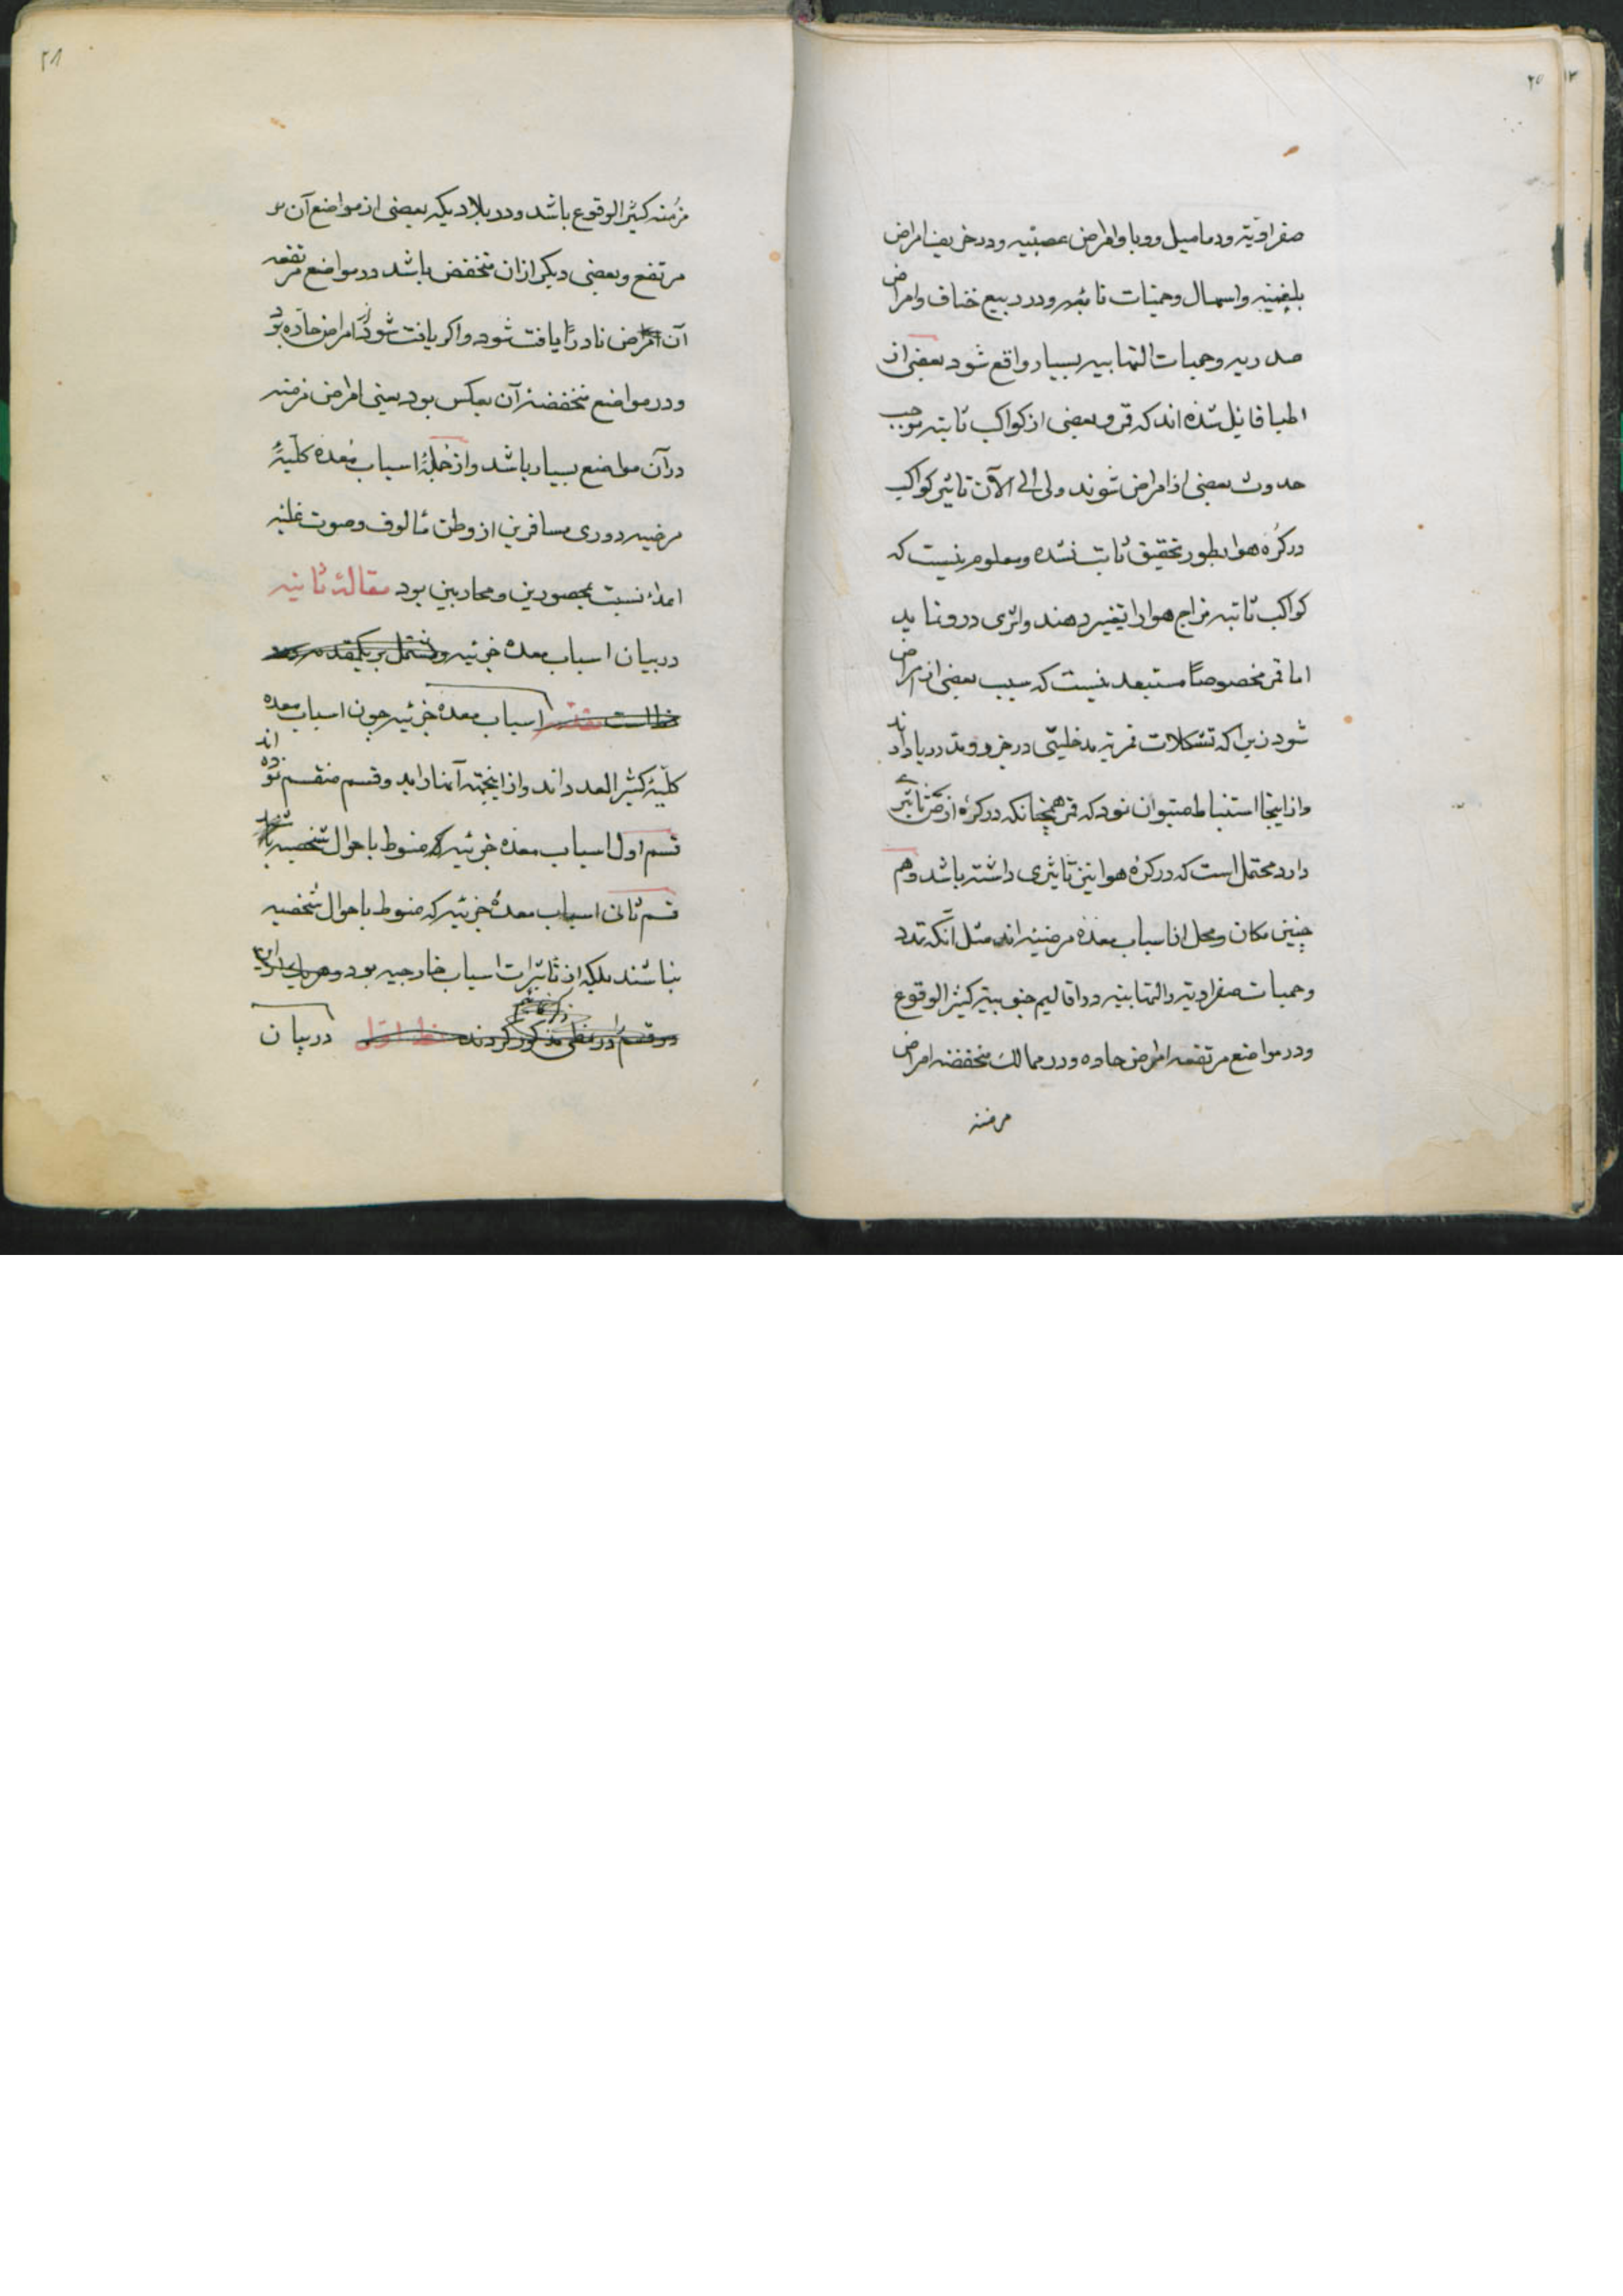 صفراویّه ودمامیل ووبا وامراض عصبیّه ودر خریف امراض
بلغمیّه واسهال وحمّیات نائبه ودر ربیع خناق وامراض
صدریه وحمیات التهابیه بسیار واقع شود بعضی از
اطبا قایل شده اند که قمر وبعضی از کواکب ثابته موجب
حدوث بعضی از امراض شوند ولی الی الآن تاثیر کواکب
در کرهٔ هوا بطور تحقیق ثابت نشده ومعلوم نیست که
کواکب ثابته مزاج هوا را تغییر دهند واثری در و نماید
اما قمر مخصوصاً مستبعد نیست که سبب بعضی از امراض
شود زیرا که تشکلات قمریّه مدخلیّتی در جزر ومد دریا دارند
واز اینجا استنباط میتوان نمود که قمر همچنانکه در کرهٔ ارض تاثیری
دارد محتمل است که در کرهٔ هوا نیز تاثیری داشته باشد وهم
چنین مکان ومحل از اسباب معدهٔ مرضیّه اند مثل آنکه تدرد
وحمیات صفراویّه والتهابیّه در اقالیم جنوبیّه کثیر الوقوع
ودر مواضع مرتفعه امراض حاده ودر ممالک منخفضه امراض
مزمنه
۲۸
مزمنه کثیر الوقوع باشد ودر بلادیکه بعضی از مواضع آن
مرتفع وبعضی دیگر از آن منخفض باشد در مواضع مرتفعه
آن امراض نادراً یافت شود واگر یافت شود امراض حادّه بود
ودر مواضع منخفضهٔ آن بعکس بود یعنی امراض مزمنه
در آن مواضع بسیار باشد واز جملهٔ اسباب معدهٔ کلّیّهٔ
مرضیه دوری مسافرین از وطن مألوف وصوت غلبه
اعداء نسبت بمحصورین ومحاربین بود مقالهٔ ثانیه
در بیان اسباب معدهٔ جزئیه ومشتمل بر یکمقدمه ودو
خط است مقدمه اسباب معدهٔ جزئیه چون اسباب معده
کلّیّه کثیر العدد اند واز اینجهة آنها را بدو قسم منقسم نموده اند
قسم اول اسباب معدهٔ جزئیه که منوط باحوال شخصیه باشد
قسم ثانی اسباب معدهٔ جزئیه که منوط باحوال شخصیه
نباشند بلکه از تاثیرات اسباب خارجیه بود وهر یک از این
دو قسم را در خطی مذکور کردند خط اول در بیان